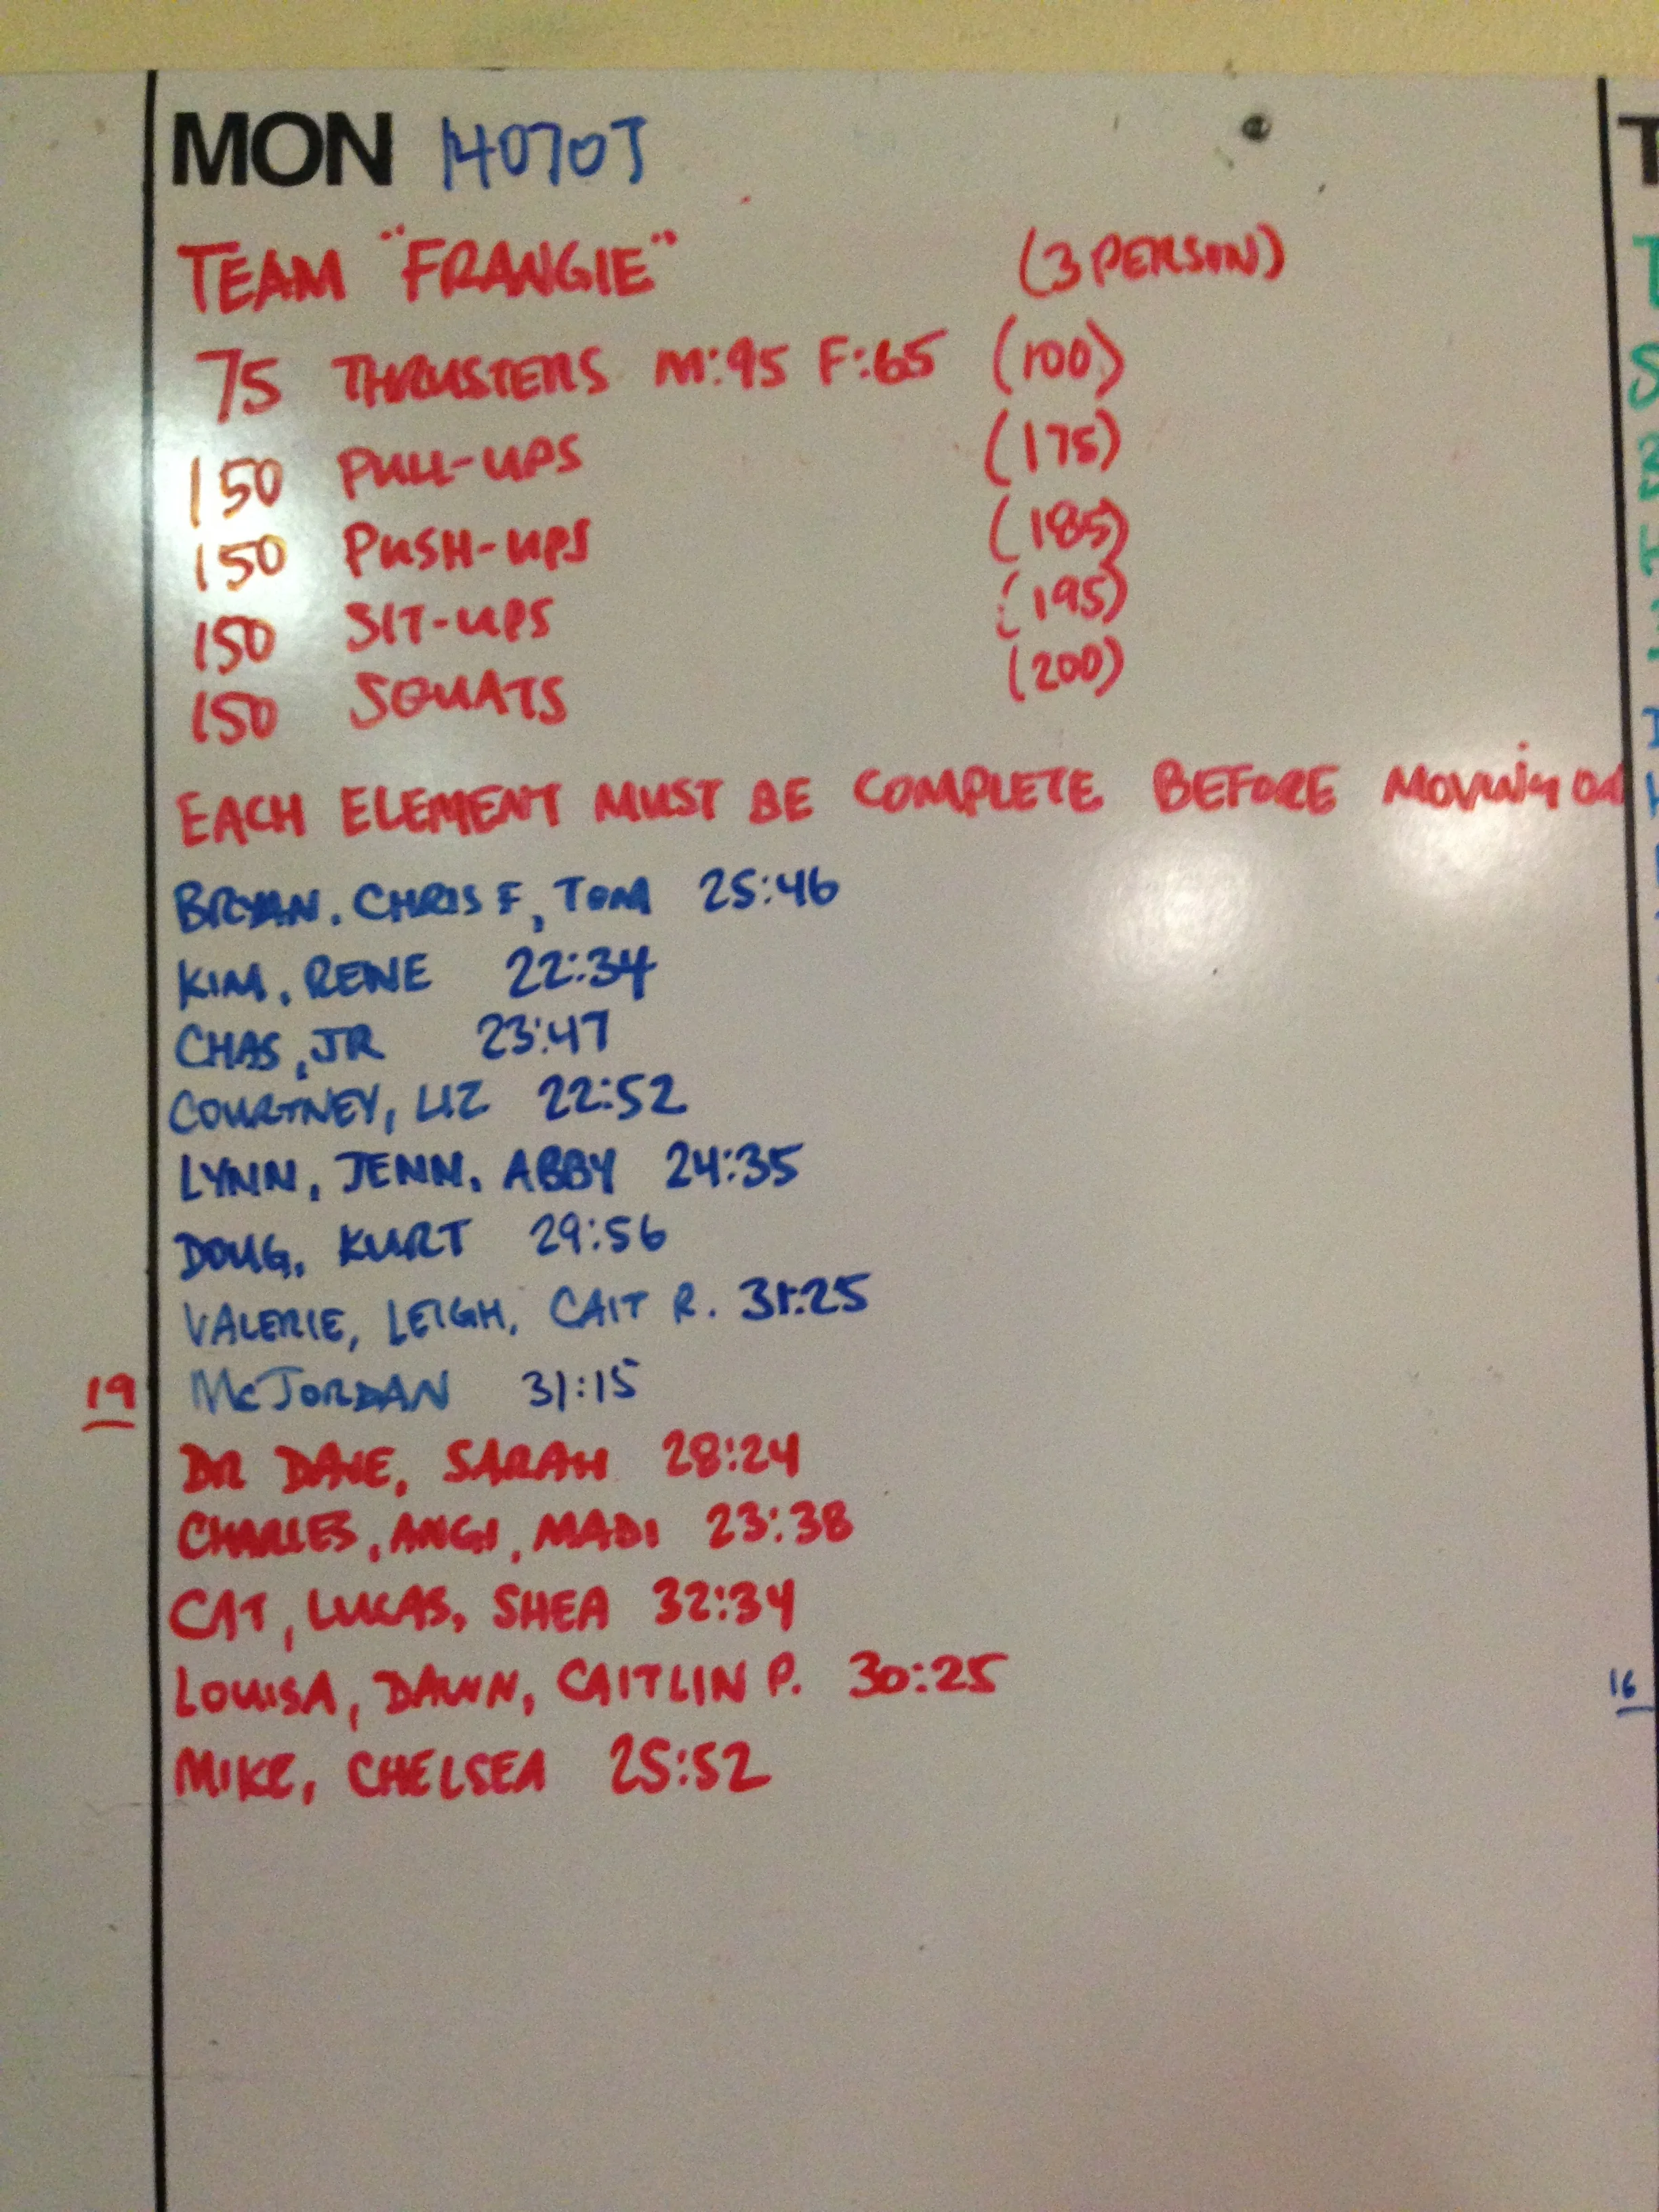 MON 140707
TEAM "FRANGIE" (3 PERSON)
75 THRUSTERS M:95 F:65 (100)
150 PULL-UPS (175)
150 PUSH-UPS (185)
150 SIT-UPS (195)
150 SQUATS (200)
EACH ELEMENT MUST BE COMPLETE BEFORE MOVING ON
BRYAN. CHRIS F, TOM 25:46
KIM, RENE 22:34
CHAS, JR 23:47
COURTNEY, LIZ 22:52
LYNN, JENN, ABBY 24:35
DOUG, KURT 29:56
VALERIE, LEIGH, CAIT R. 31:25
19 McJORDAN 31:15
DR DAVE, SARAH 28:24
CHARLES, ANGI, MADI 23:38
CAT, LUCAS, SHEA 32:34
LOUISA, DAWN, CAITLIN P. 30:25
16
MIKE, CHELSEA 25:52